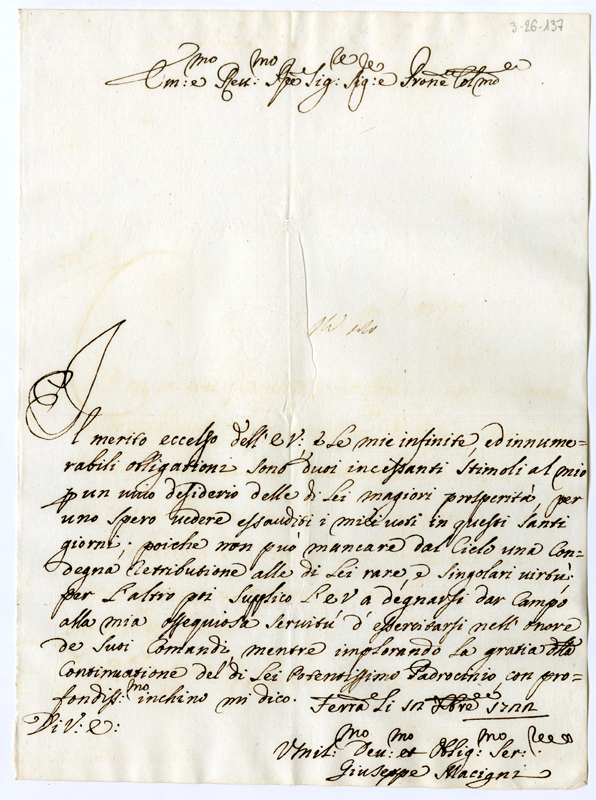 3-26-137
Em:mo e Reu:mo Sp.re Sig:re Sig:re e Pron.e Col.mo
Il merito eccelso dell'E V: e le mie infinite, ed innume=
rabili obligationi sono duoi incessanti stimoli al mio
un uiuo desiderio delle di Lei magiori prosperità, per
uno spero uedere essauditi i miei uoti in questi santi
giorni; poiche non può mancare dal Cielo una Con=
degna retributione alle di Lei rare, e singolari uirtù:
per l'altro poi supplico l'E V a degnarsi dar campo
alla mia ossequiosa seruitù d'essercitarsi nell'onore
de suoi Comandi, mentre implorando la gratia della
Continuatione del di Lei Potentissimo Padrocinio, con pro=
fondiss:mo inchino mi dico. Ferra li 12 Xbre 1722
Di V: E:
Vmil:mo Deu:mo et Oblig:mo Ser:re
Giuseppe Macigni